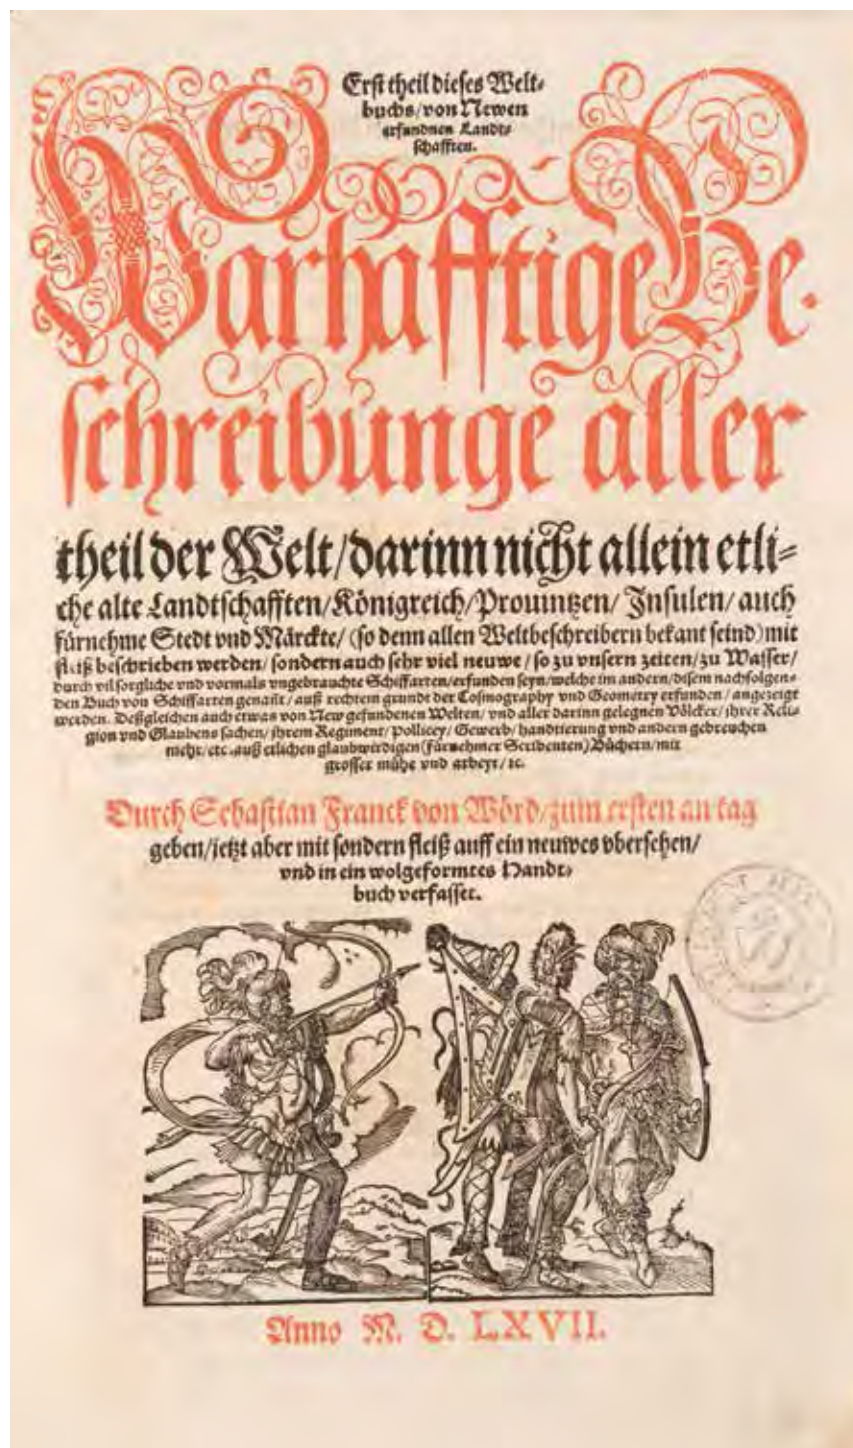 Erst theil dieses Welt⸗
buchs/von Newen
erfundnen Landt⸗
schafften.
Warhafftige Be⸗
schreibunge aller
theil der Welt/darinn nicht allein etli⸗
che alte Landtschafften/Königreich/Prouintzen/Insulen/auch
fürnehme Stedt vnd Märckte/(so denn allen Weltbeschreibern bekant seind)mit
fleiß beschrieben werden/sondern auch sehr viel neuwe/so zu vnsern zeiten/zu Wasser/
durch vil sorgliche vnd vormals vngebrauchte Schiffarten/erfunden seyn/welche im andern/disem nachfolgen⸗
den Buch von Schiffarten genañt/auß rechtem grundt der Cosmography vnd Geometry erfunden/angezeigt
werden. Deßgleichen auch etwas von New gefundenen Welten/vnd aller darinn gelegnen Völcker/jhrer Reli⸗
gion vnd Glaubens sachen/jhrem Regiment/Pollicey/Gewerb/handtierung vnd andern gebreuchen
mehr/etc. auß etlichen glaubwirdigen(fürnehmer Scribenten)Büchern/mit
grosser mühe vnd arbeyt/ꝛc.
Durch Sebastian Franck von Wörd/zum ersten an tag
geben/jetzt aber mit sondern fleiß auff ein neuwes vbersehen/
vnd in ein wolgeformtes Handt⸗
buch verfasset.
Anno M. D. LXVII.